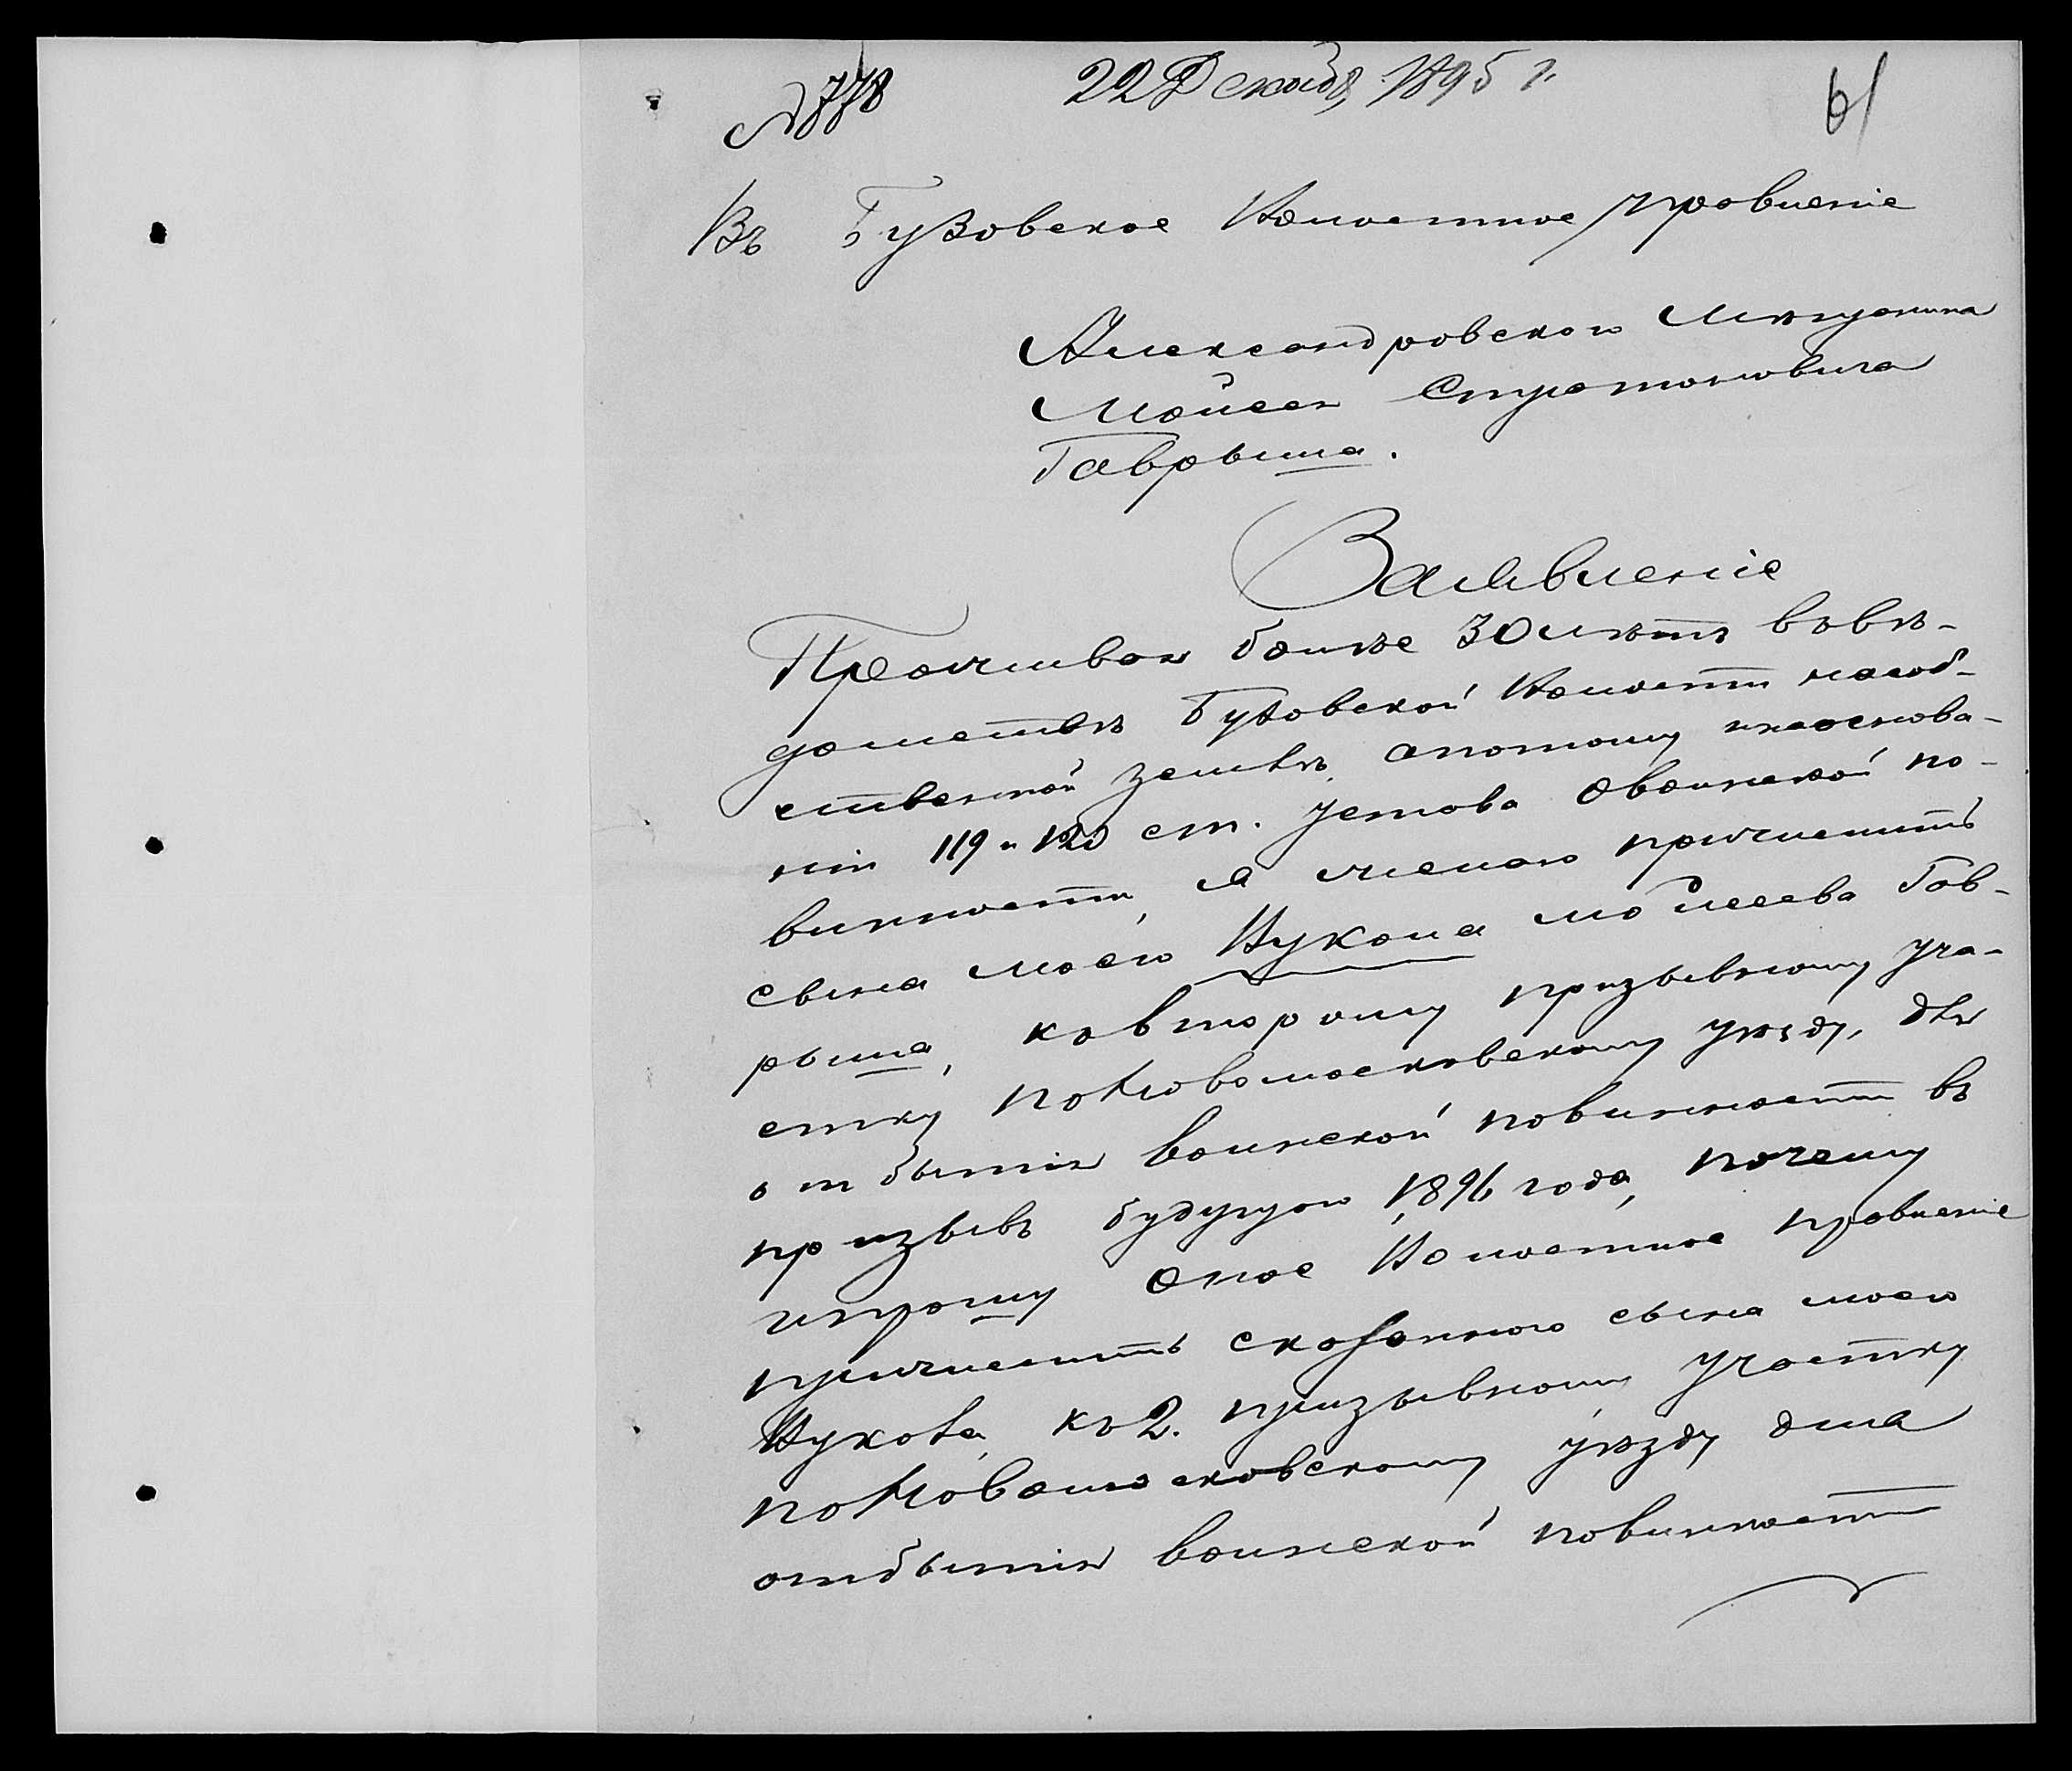 № 778 22 Декабр. 1895 г. 61
Въ Бузовское Волостное Правленіе
Александровскаго Мѣщанина
Моисея Стратоновича
Гаврыша.
Заявленіе
Проживая болѣе 30 лѣтъ въ вѣ-
домствѣ Бузовской Волости на соб-
ственной землѣ, а потому и на основа-
ніи 119 и 120 ст. устава о воинской по-
винности, я желаю причислить
сына моего Лукона Моисеева Гав-
рыша, ко второму призывному уча-
стку по Новомосковскому уѣзду, для
отбытія воинской повинности въ
призывъ будущаго 1896 года, почему
и прошу оное Волостное правленіе
причислить сказаннаго сына моего
къ 2. призывному участку
по Новомосковскому уѣзду для
отбытія воинской повинности